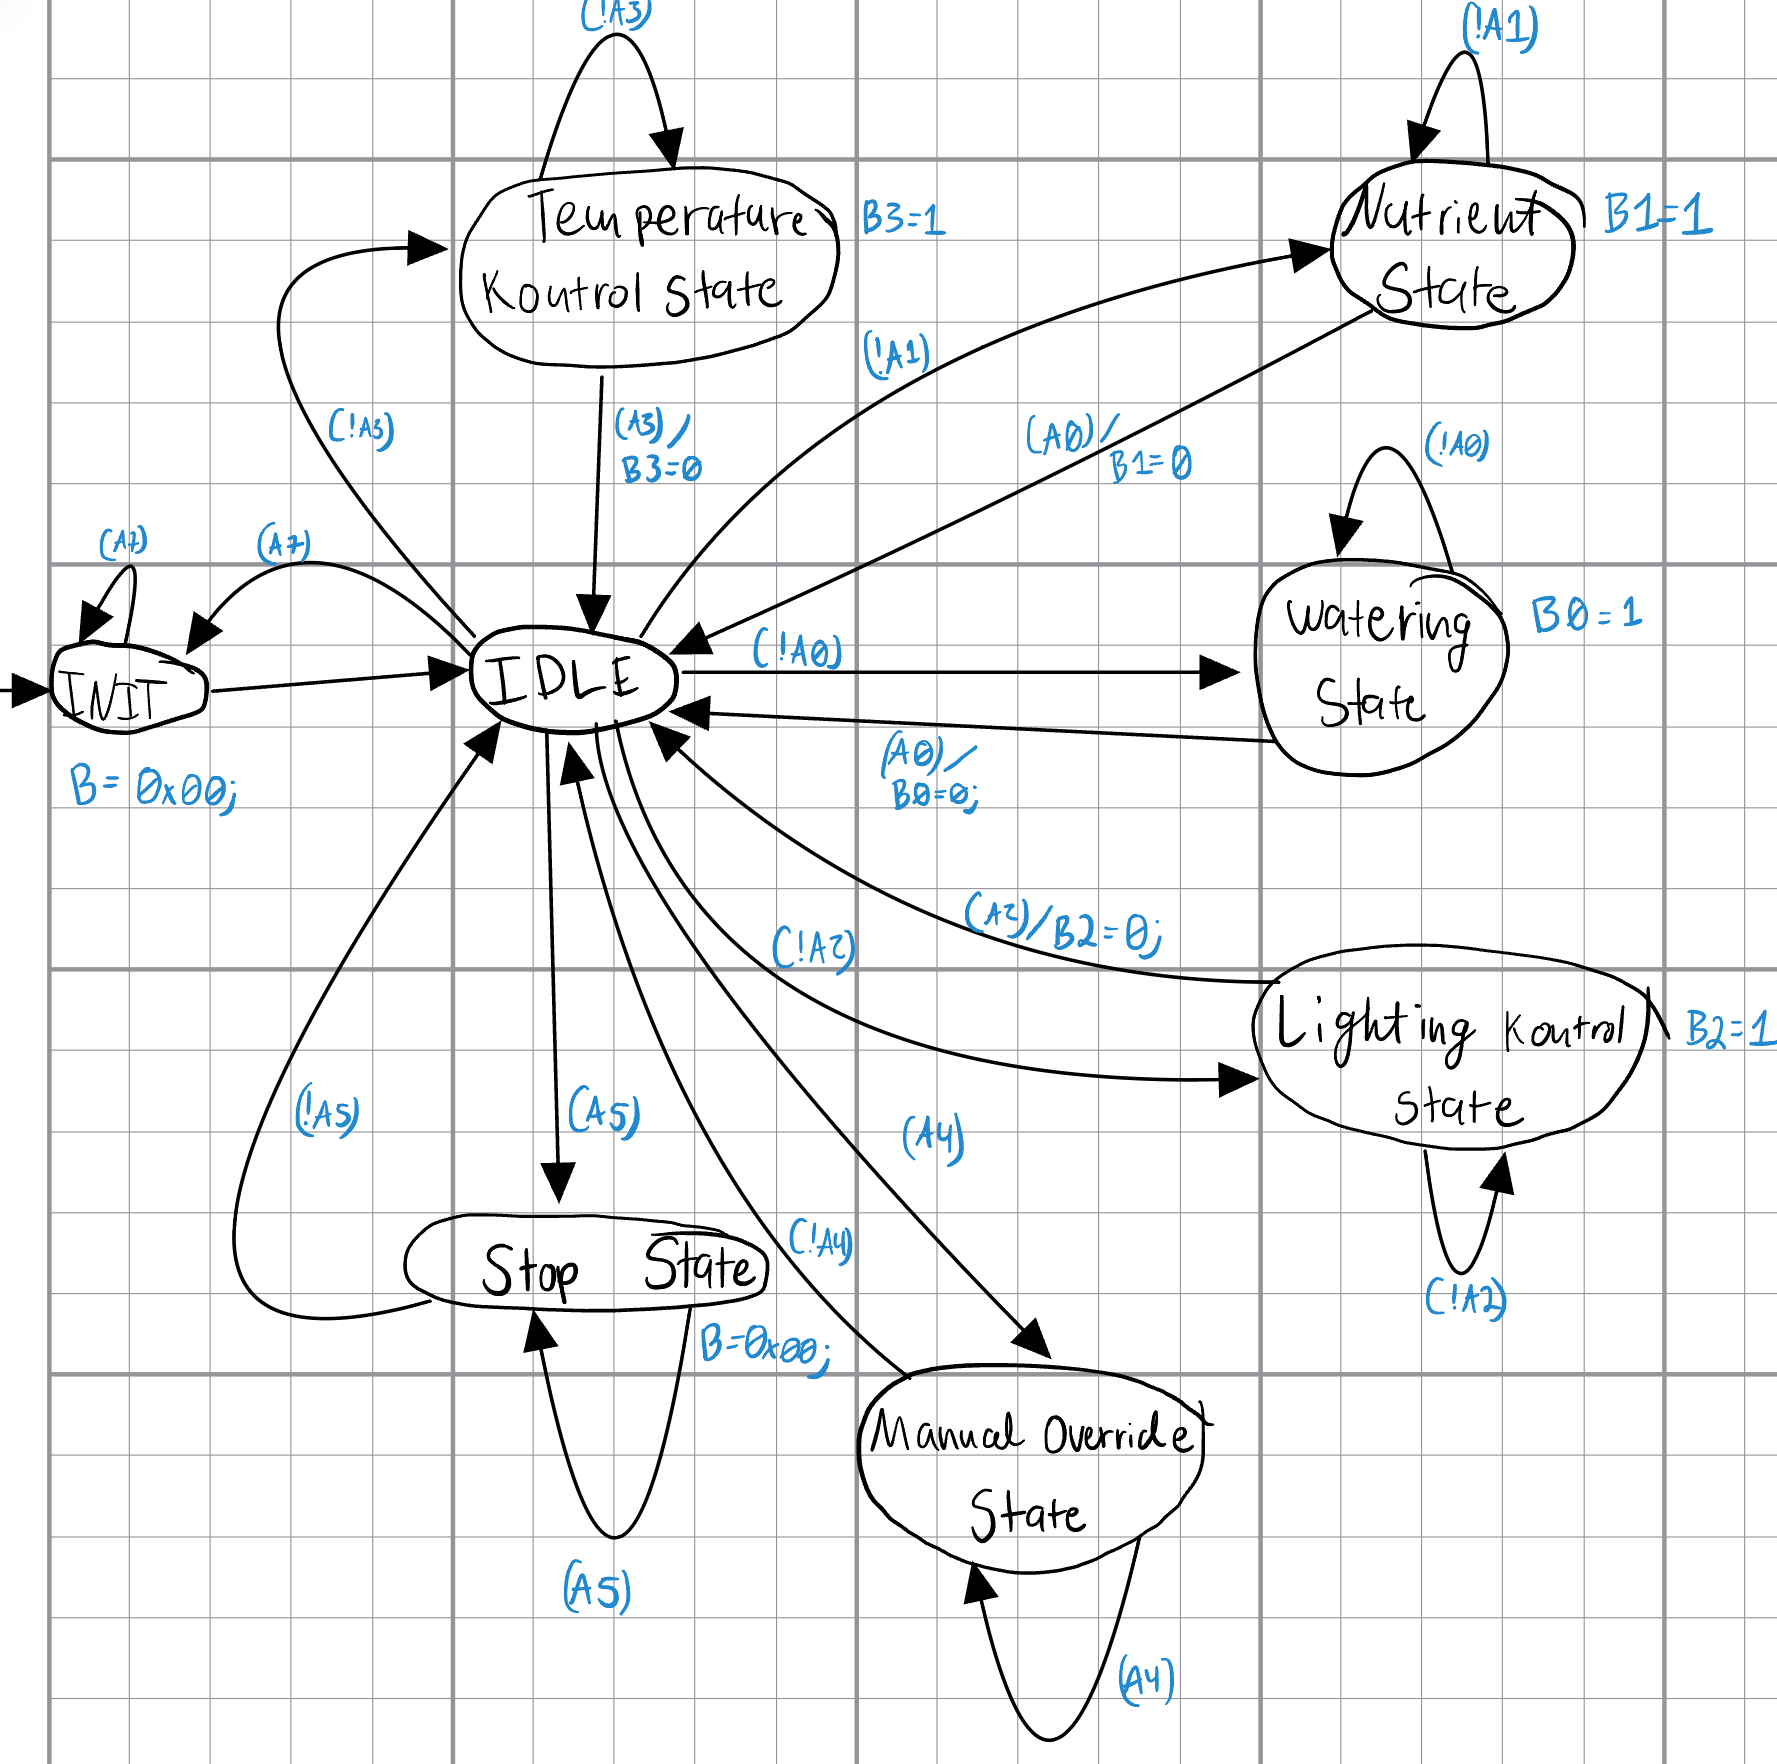 (!A3)
(!A1)
Temperature
Kontrol State
B3=1
Nutrient
State
B1=1
(!A1)
(!A3)
(A3)/
B3=0
(A0)/
B1=0
(!A0)
(A7)
(A7)
Watering
State
B0=1
INIT
IDLE
(!A0)
B=0x00;
(A0)/
B0=0;
(A2)/B2=0;
(!A2)
Lighting Kontrol
State
B2=1
(!A5)
(A5)
(A4)
(!A4)
Stop State
B=0x00;
(!A2)
Manual Override
State
(A5)
(A4)